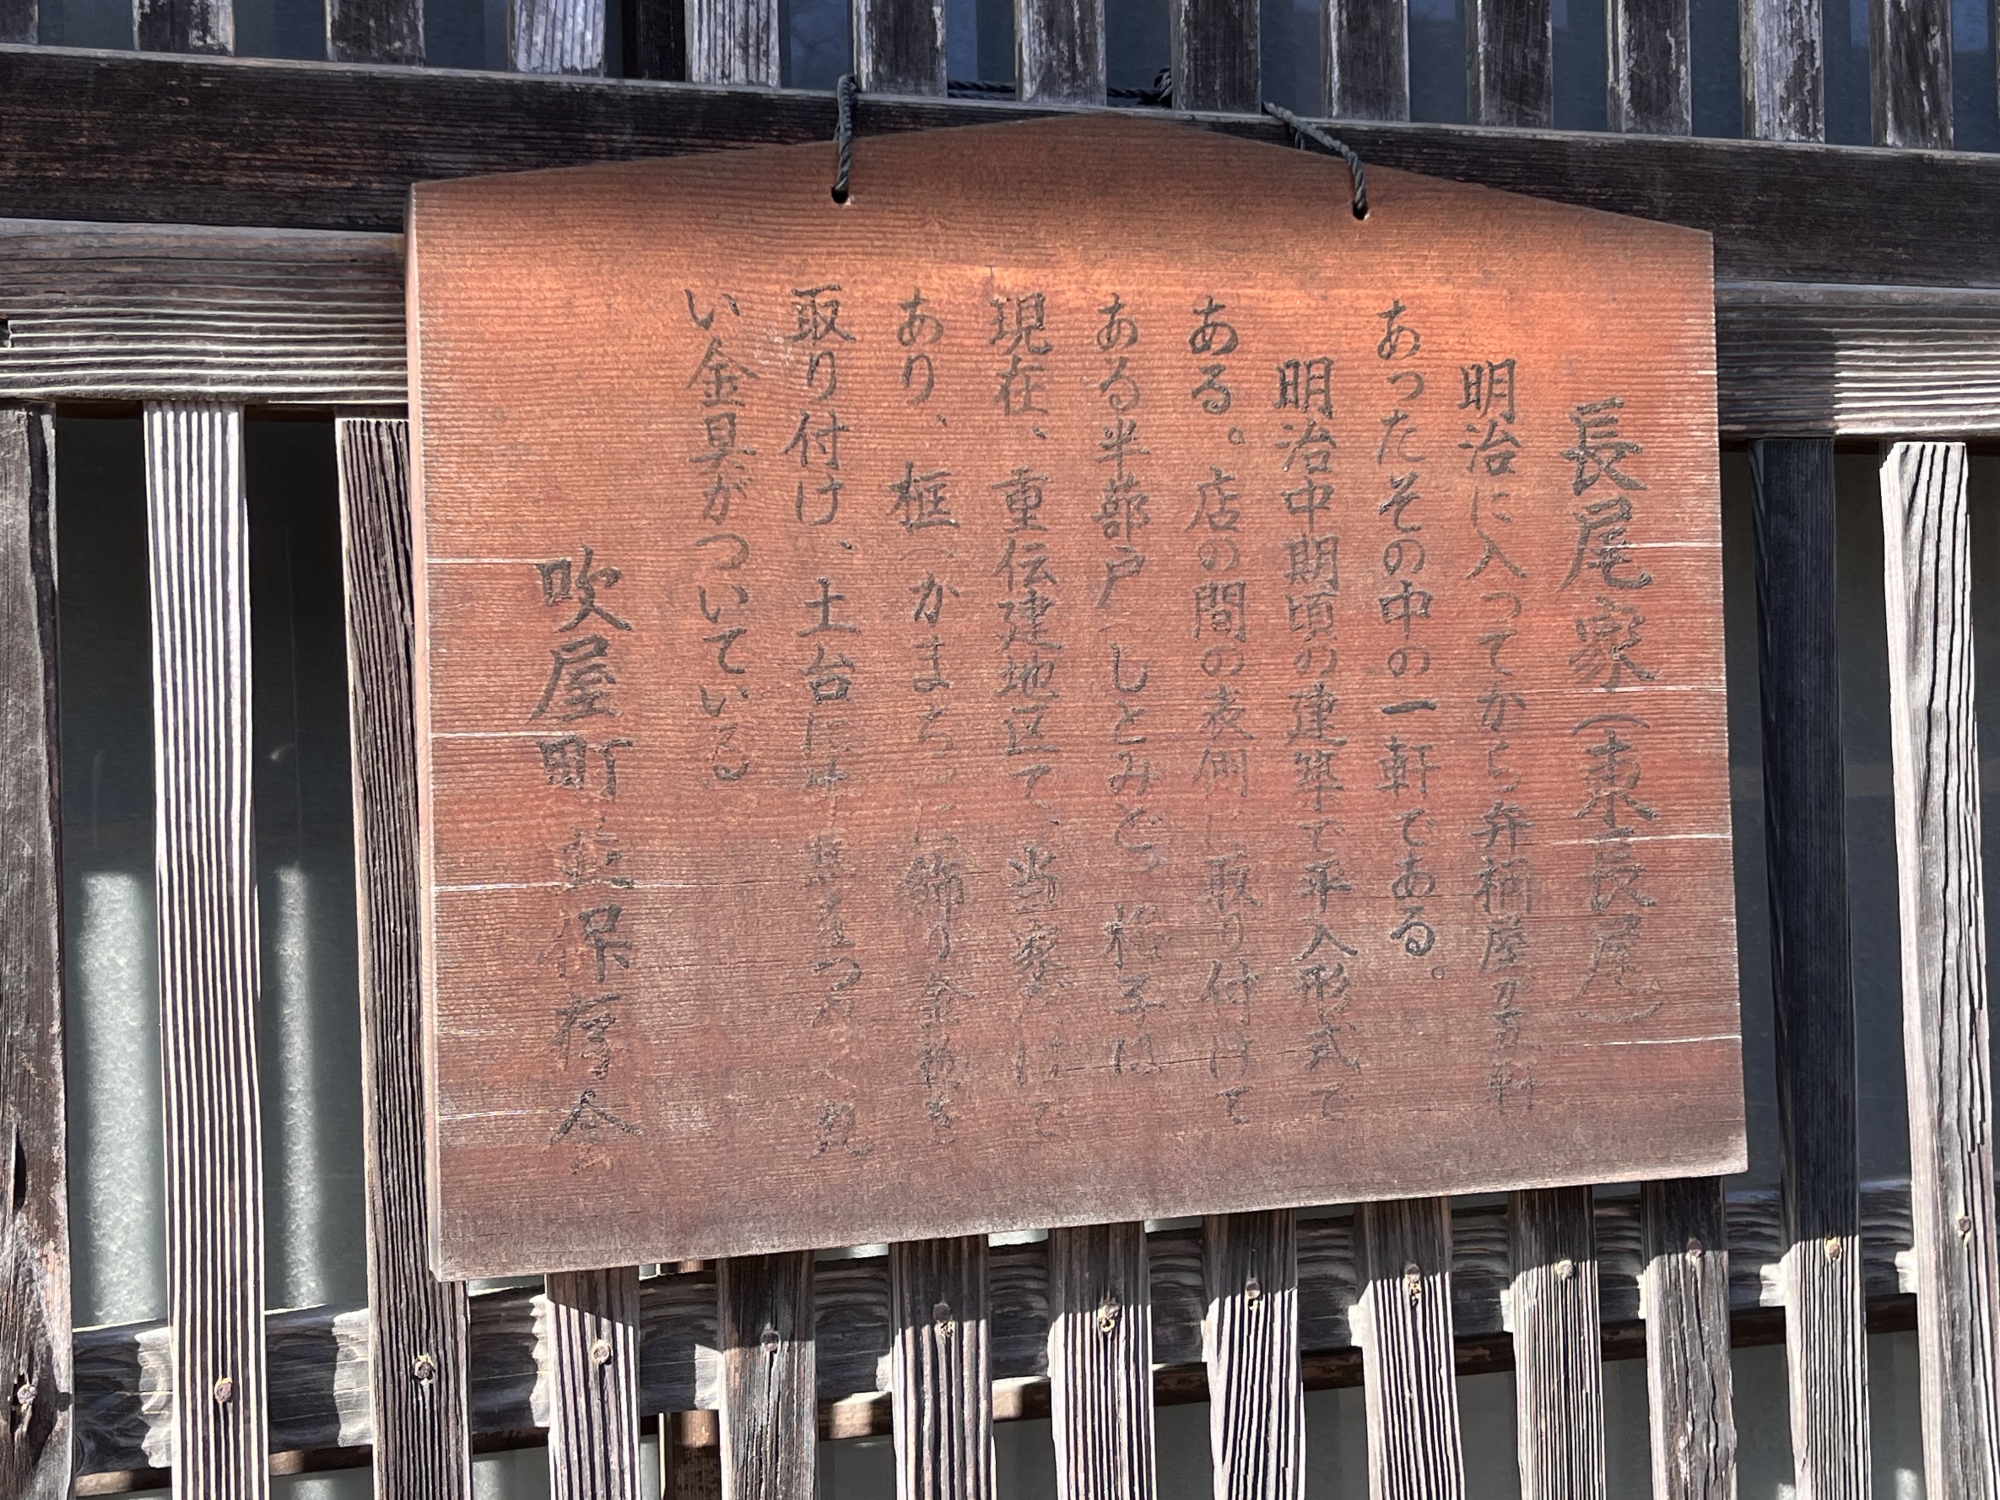 長尾家(東長尾)
明治に入ってから弁柄屋が五軒
あったその中の一軒である。
明治中期頃の建築で平入形式で
ある。店の間の表側に取り付けて
ある半蔀戸(しとみど)、格子は
現在、重伝建地区で、当家だけで
あり、框(かまち)に飾り金物を
取り付け、土台には
い金具がついている
吹屋町並保存会